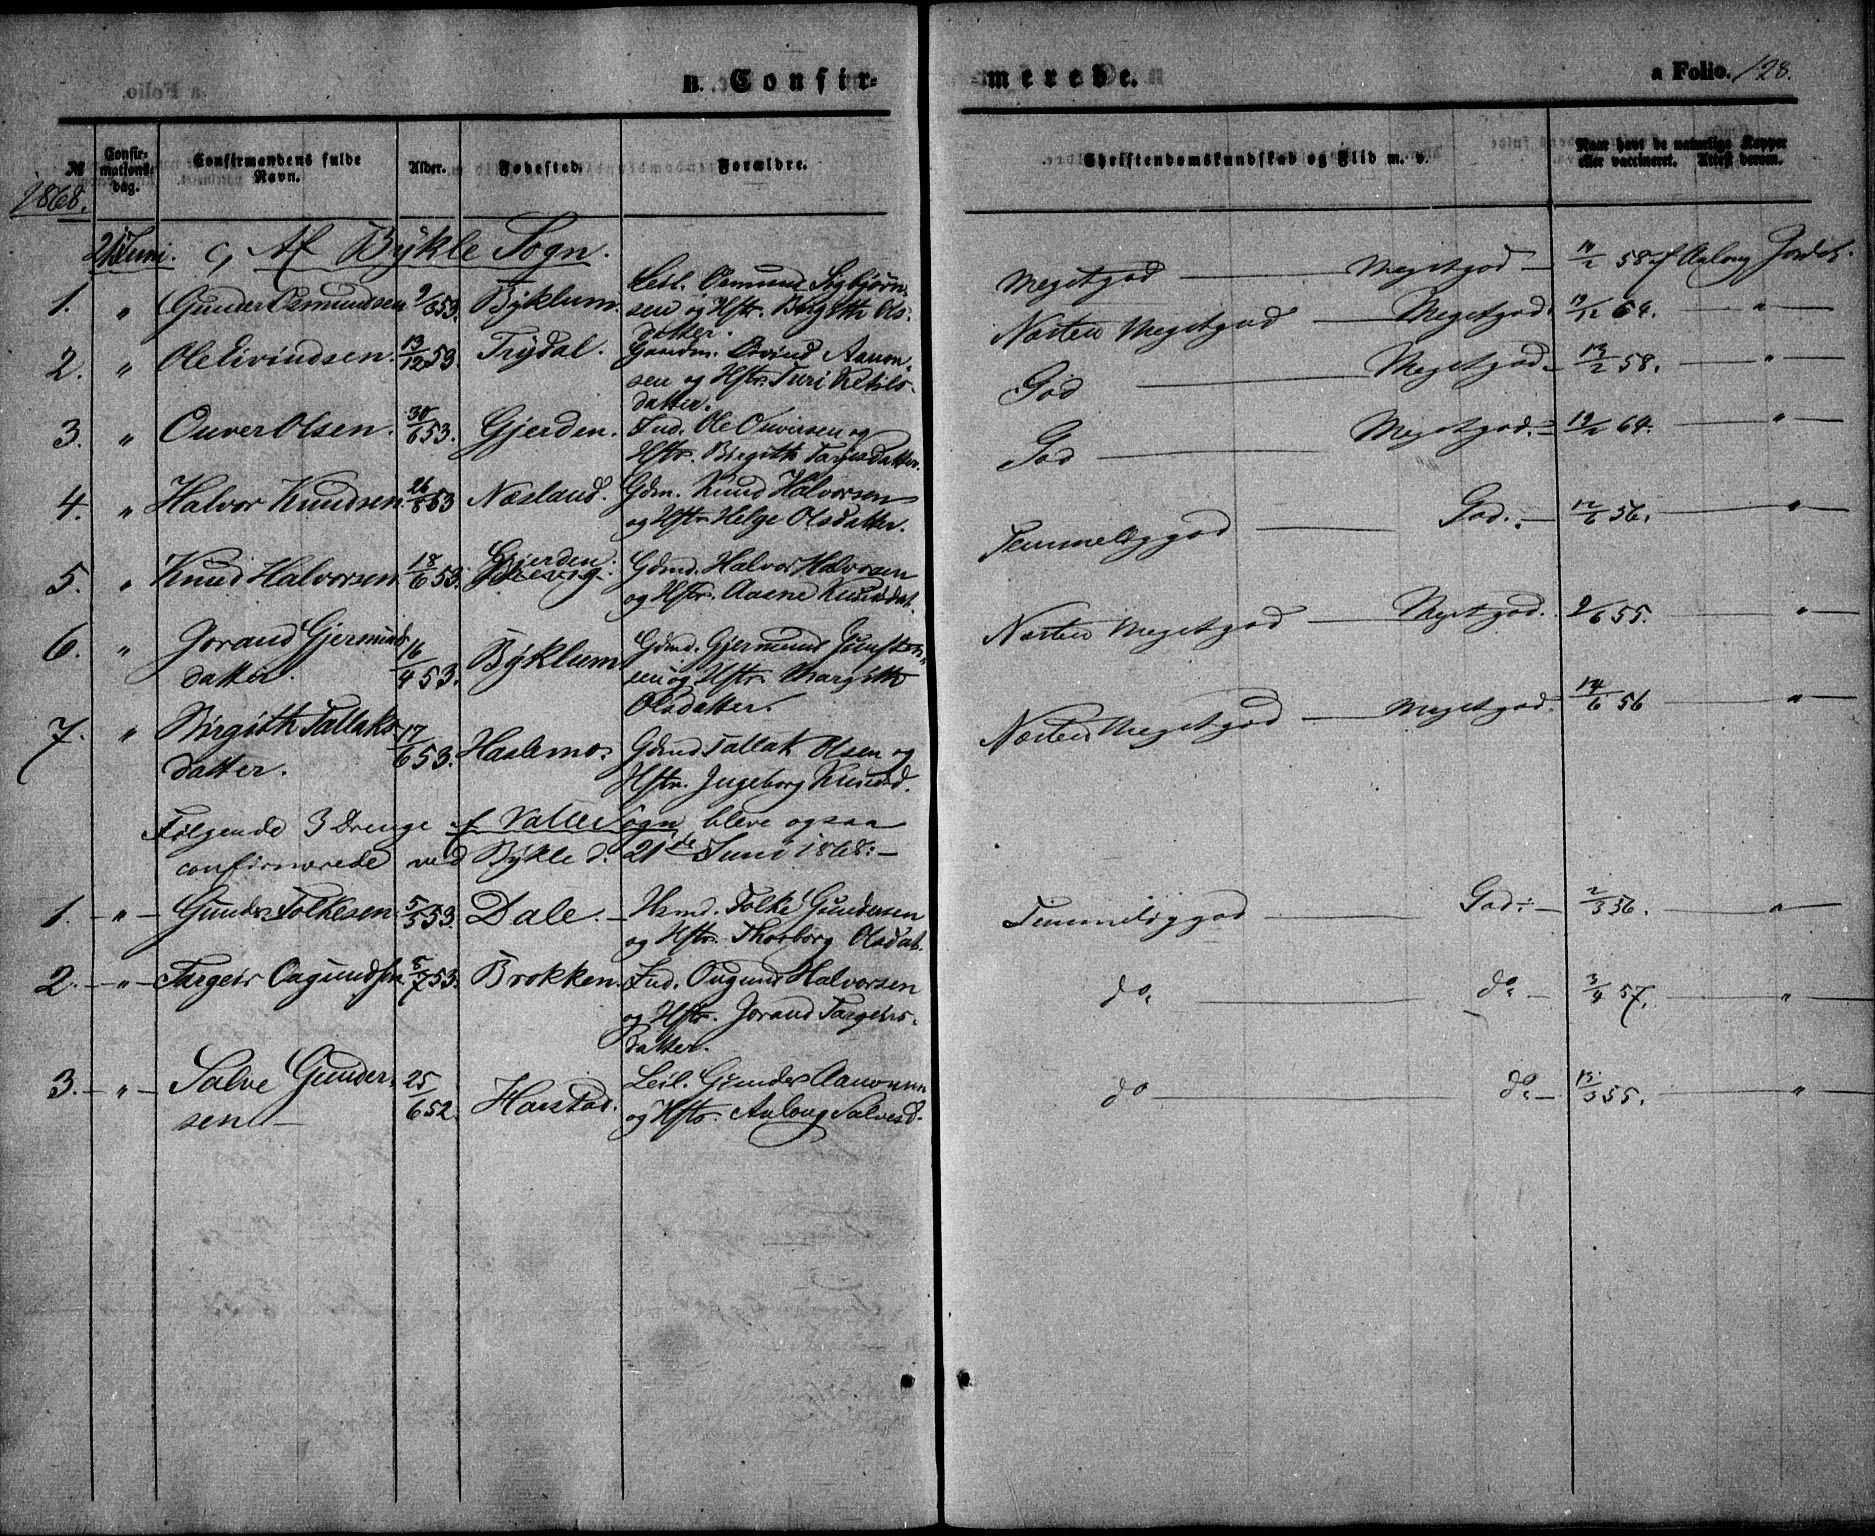 B. Confir-
merede.
a Folio. 128.
№
Confir-
mations-
dag.
Confirmandens fulde
Navn.
Alder.
Fødested.
Forældre.
Christendomskundskab og Flid m. v.
Naar havt de naturlige Kopper
eller vaccineret. Attest derom.
1868.
21 Juni. c, Af Bykle Sogn.
1. " Gunder Osmundsen 9/3 53. Byklum. Leil. Osmund Sigbjørn-
sen og Hstr. Birgith Ols-
datter.
Megetgod — Megetgod — 58 f Aslong Jordet.
2. " Ole Eivindsen. 13/12 53. Trydal. Gaardm. Eivind Aanon-
sen og Hstr. Turi Ketils-
datter.
Næsten Megetgod — Megetgod. 64. "
3. " Onver Olsen. 30/6 53. Gjerden. Ind. Ole Onversen og
Hstr. Birgith Targesdatter.
God — Megetgod. 13/2 58. "
4. " Halvor Knudsen. 26/8 53 Næsland. Gdm. Knud Halvorsen
og Hstr. Helge Olsdatter.
God — Megetgod. 12/2 64. "
5. " Knud Halvorsen 18/6 53. Gjerden. Gdmd. Halvor Halvorsen
og Hstr. Aasne Knudsdat.
Temmeliggod — God. 12/6 56. "
6. " Jorand Gjermunds-
datter. 16/4 53. Byklum Gdmd. Gjermund Gunsten-
sen og Hstr. Margith
Olsdatter.
Næsten Megetgod — Megetgod. 2/6 55. "
7. " Birgith Tallaks-
datter. 17/6 53. Haslemo. Gdmd Tallak Olsen og
Hstr. Ingeborg Knudsd.
Næsten Megetgod — Megetgod. 14/6 56 "
Følgende 3 Drenge af Valle Sogn bleve ogsaa
confirmerede ved Bykle d. 21de Juni 1868: —
1. — " — Gunder Folkesen 5/5 53. Dale. — Hsmd. Folke Gundersen
og Hstr. Thorborg Olsdat.
Temmeliggod — God: — 2/3 56. — "
2. — " — Targeir Ougundsen 8/7 53. Brokken. Ind. Ougund Halvorsen
og Hstr. Jorand Targeirs-
datter.
do. — do. — 3/4 57. — "
3. — " — Salve Gunder-
sen — 25/6 52. Harstad. Leil. Gunder Aanonsen
og Hstr. Aslong Salvesd.
do — do. — 13/3 55. — "